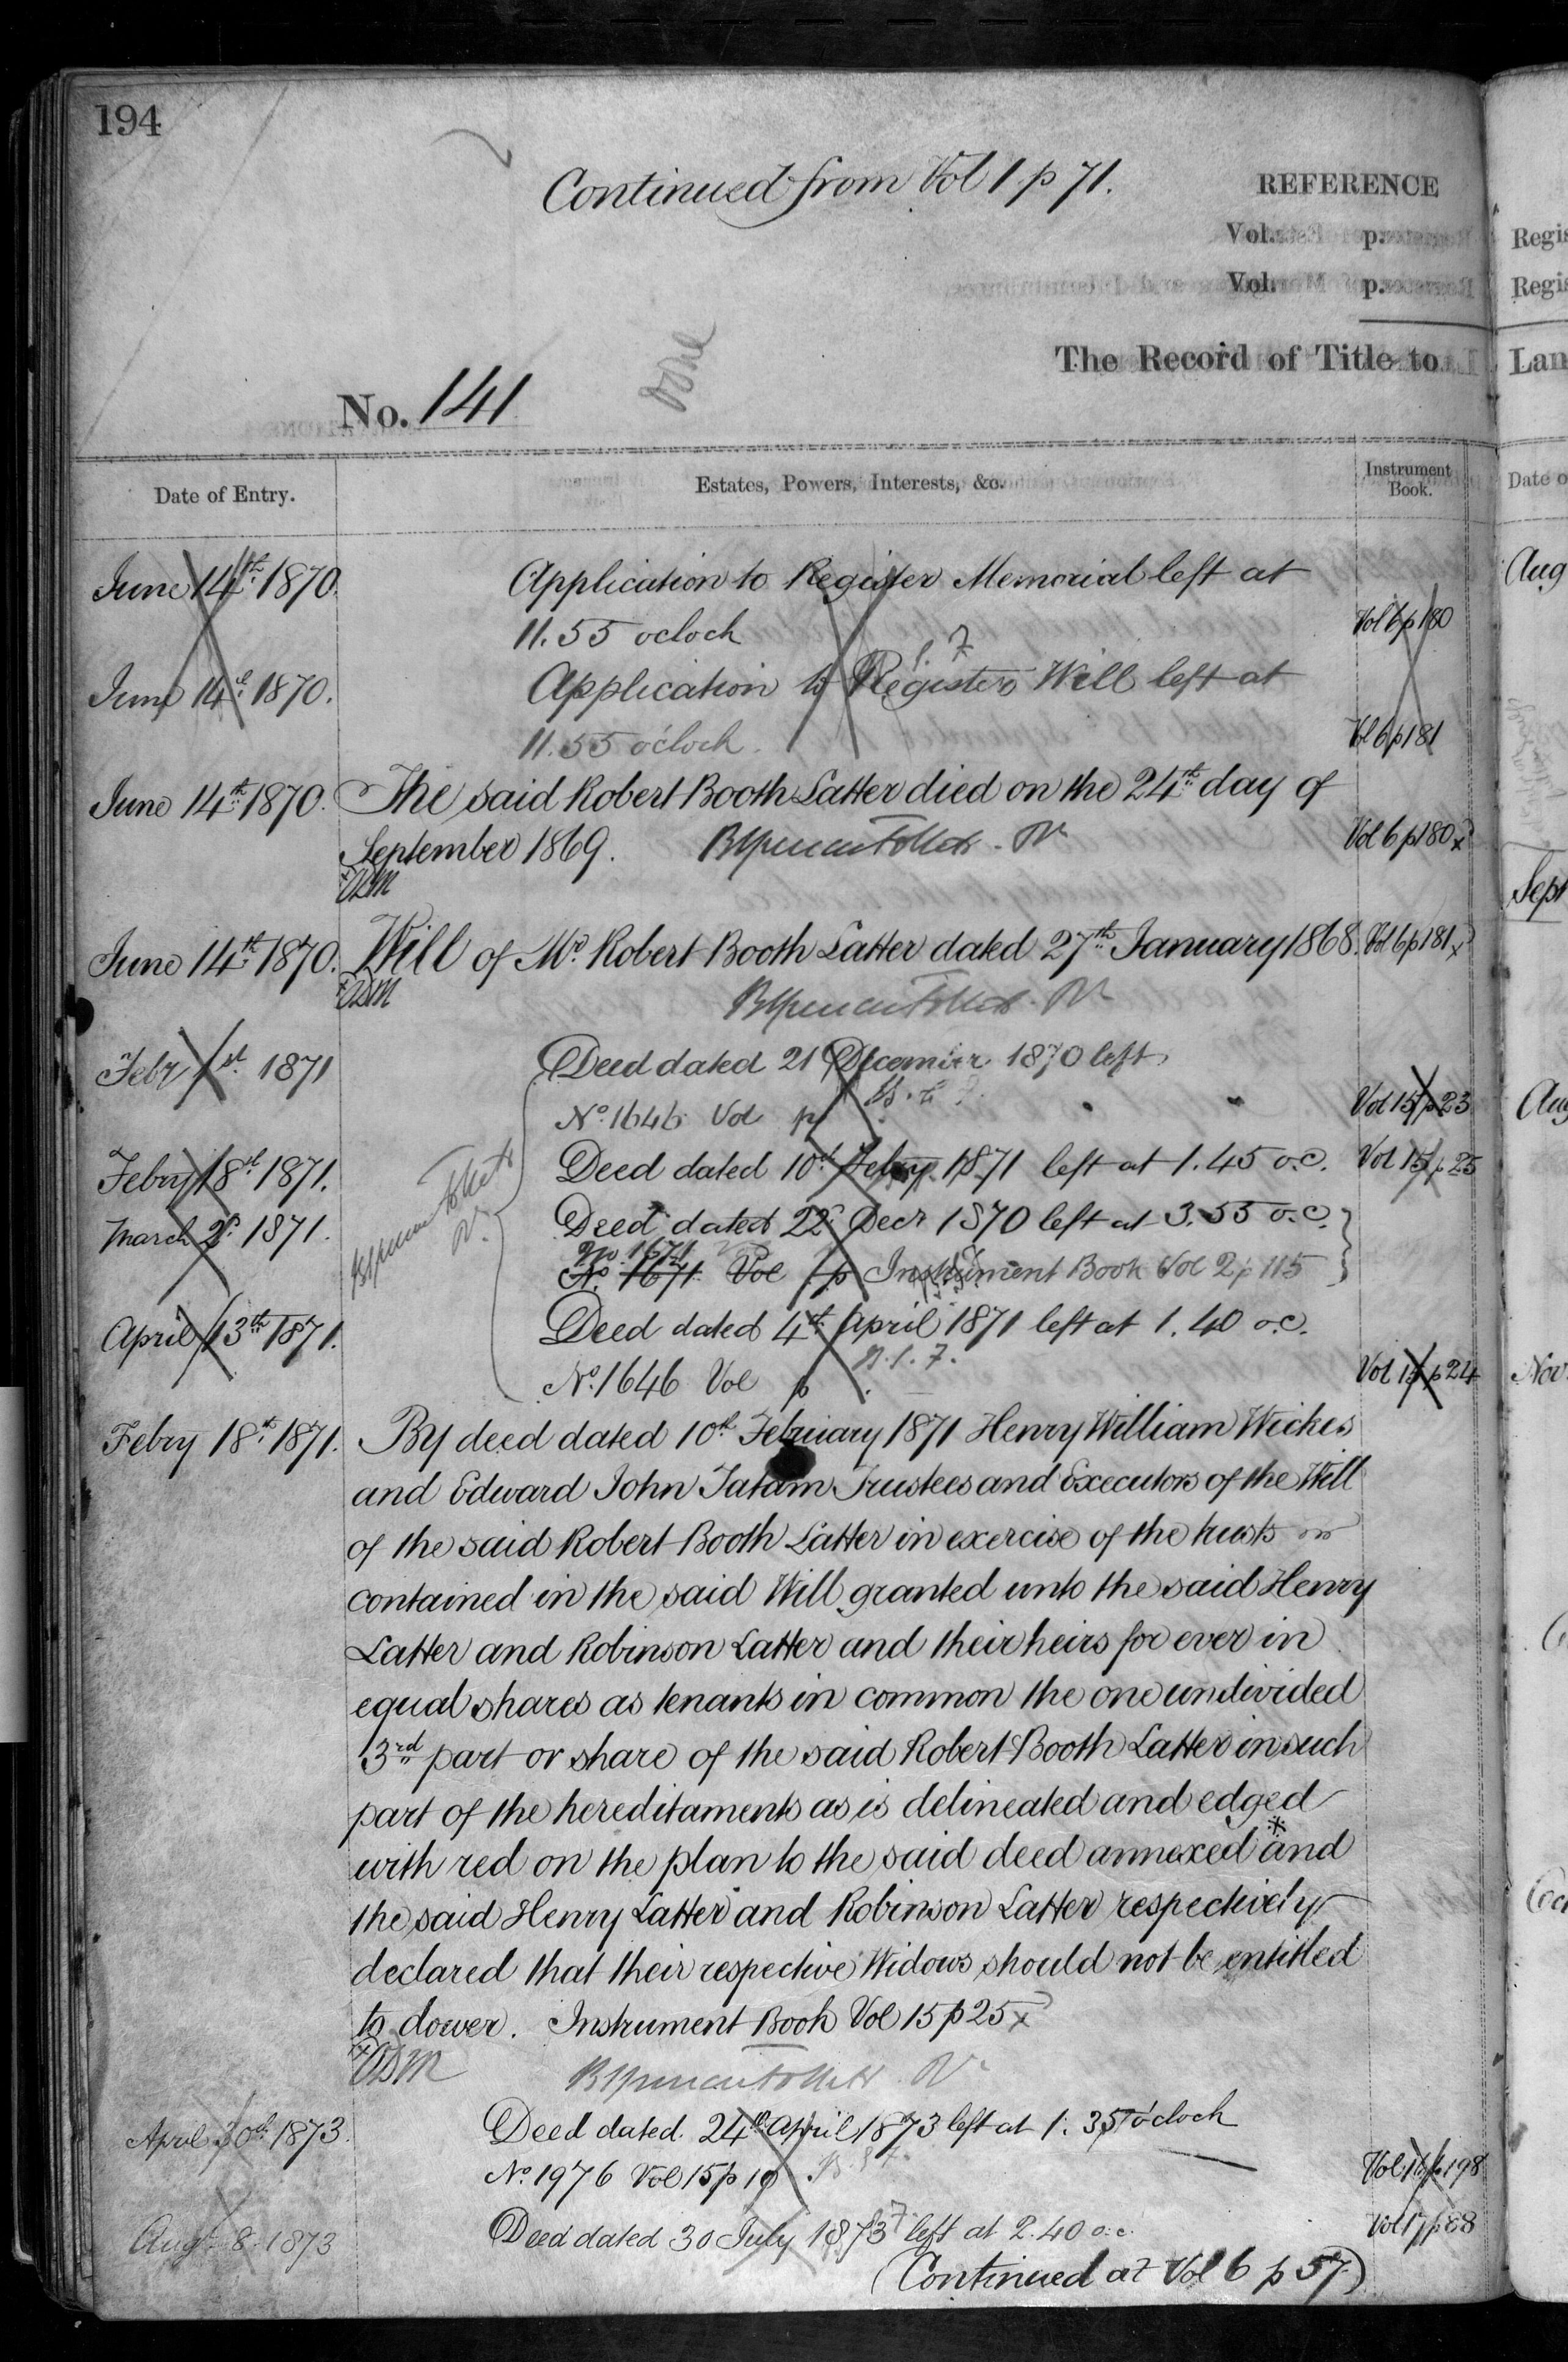 194
Continued from Vol 1 p 71.
REFERENCE
Vol. p.
Vol. p.
The Record of Title to
done
No. 141
Date of Entry. Estates, Powers, Interests, &c. Instrument Book.
June 14th 1870. Application to Register Memorial left at
11.55 oclock Vol 6 p 180
June 14th 1870. Application to Register Will left at
11.55 o'clock. Vol 6 p 181
June 14th 1870. The said Robert Booth Latter died on the 24th day of
September 1869. Vol 6 p 180 x
June 14th 1870. Will of Mr. Robert Booth Latter dated 27th January 1868. Vol 6 p 181 x
Febr 1st 1871 Deed dated 21 December 1870 left
No. 1646 Vol p Vol 15 p 23
Febry 18th 1871. Deed dated 10th Febry 1871 left at 1.45 o.c. Vol 15 p 25
March 2d 1871. Deed dated 22d Decr 1870 left at 3.55 o.c.
No. 1671
No. 1671 Vol p Instrument Book Vol 2 p 115
April 13th 1871. Deed dated 4th April 1871 left at 1.40 o.c.
No. 1646 Vol p Vol 15 p 24
Febry 18th 1871. By deed dated 10th February 1871 Henry William Wickes
and Edward John Tatam Trustees and Executors of the Will
of the said Robert Booth Latter in exercise of the trusts in
contained in the said Will granted unto the said Henry
Latter and Robinson Latter and their heirs for ever in
equal shares as tenants in common the one undivided
3rd part or share of the said Robert Booth Latter in such
part of the hereditaments as is delineated and edged
with red on the plan to the said deed annexed * and
the said Henry Latter and Robinson Latter respectively
declared that their respective Widows should not be entitled
to dower. Instrument Book Vol 15 p 25 x
April 30th 1873. Deed dated 24th April 1873 left at 1.35 o'clock
No. 1976 Vol 15 p 19 Vol. 16 p 198
Augt 8. 1873 Deed dated 30 July 1873 left at 2.40 o.c. Vol 17 p 88
(Continued at Vol 6 p 57)
Regis
Regis
Lan
Date o
Aug
Sept
Aug
Nov